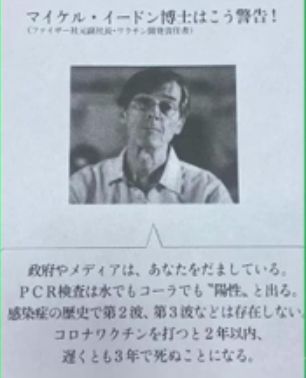 マイケル・イードン博士はこう警告!
(ファイザー社元副社長・ワクチン開発責任者)
政府やメディアは、あなたをだましている。
PCR検査は水でもコーラでも〝陽性〟と出る。
感染症の歴史で第2波、第3波などは存在しない。
コロナワクチンを打つと2年以内、
遅くとも3年で死ぬことになる。